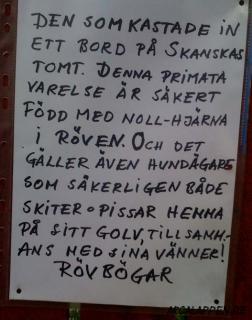 DEN SOM KASTADE IN
ETT BORD PÅ SKANSKAS
TOMT. DENNA PRIMATA
VARELSE ÄR SÄKERT
FÖDD MED NOLL-HJÄRNA
I RÖVEN. OCH DET
GÄLLER ÄVEN HUNDÄGARE
SOM SÄKERLIGEN BÅDE
SKITER O PISSAR HEMMA
PÅ SITT GOLV, TILLSAMM-
ANS MED SINA VÄNNER!
RÖVBÖGAR